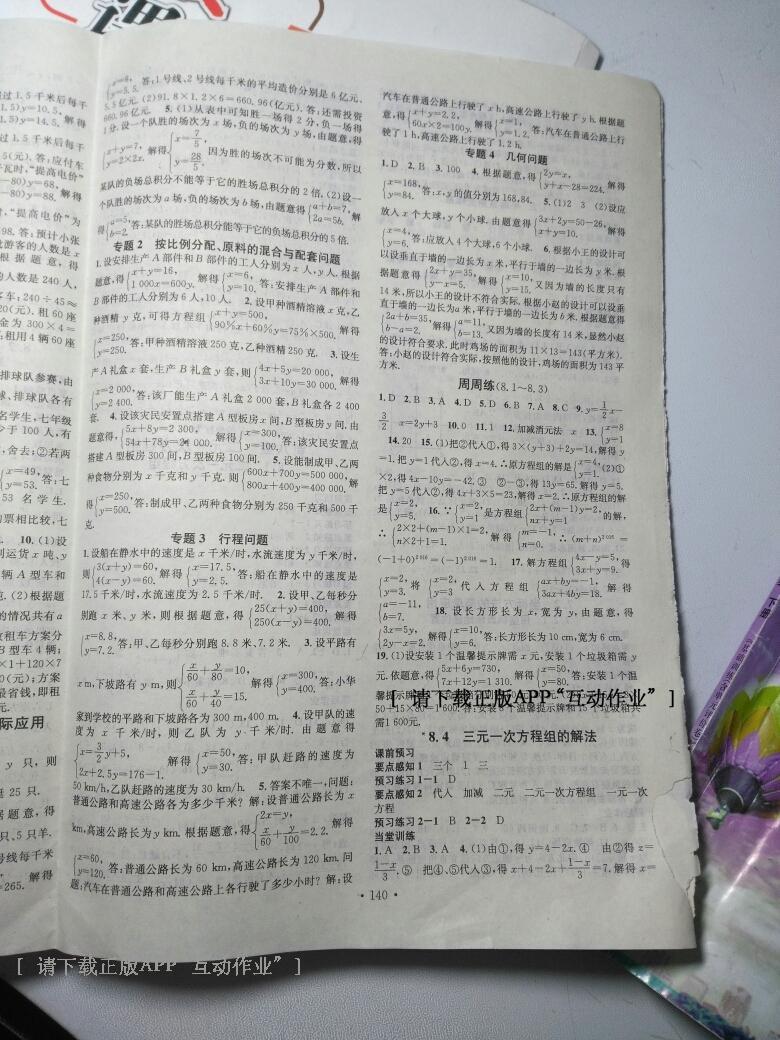 课
过 1.5 千米后每千
1.5)y=10.5,
1.5)y=14.5, 解得
5(元). 答:应付车
瓦时,“提高电价”
-80)y=68, 解得
-80)y=88.
“提高电价”为
98. 答:预计小张
的人数是 240 人,
客车:240÷45≈
20(元). 租 60 座
金为 300×4=
租用 4 辆 60 座
排球队参赛,由
球、排球队各有
名学生,七年级
于 100 人,有
舍去;②若两
x=49, 答:七
y=53.
53 名学生.
购票相比较,七
10. (1)设
到运货 x 吨、y
辆 A 型车和
. (2)根据题
的情况共有 a
故租车方案分
B 型车 4 辆;
×1+120×7
20(元);方案
最省钱,即租
际应用
y 只,则
鸡 25 只.
据题意,得
只、5 只羊.
号线每千米
=265. 解得
{x=6, y=5.5. 答:1 号线、2 号线每千米的平均造价分别是 6 亿元、
5.5 亿元. (2)91.8×1.2×6=660.96(亿元). 答:还需投资
660.96 亿元. 5. (1)从表中可知胜一场得 2 分,负一场得
1 分. 设一个队胜的场次为 x 场,负的场次为 y 场,由题意,得
{x+y=7, y=2×2x. 解得 {x=7/5, y=28/5. 因为胜的场次不可能为分数,所以
某队的负场总积分不能等于它的胜场总积分的 2 倍. (2)设一
个队胜的场次为 a 场,负的场次为 b 场,由题意得 {a+b=7, 2a=5b. 解
得 {a=5, b=2. 答:某队的胜场总积分能等于它的负场总积分的 5 倍.
专题 2 按比例分配、原料的混合与配套问题
1. 设安排生产 A 部件和 B 部件的工人分别为 x 人,y 人. 根据
题意,得 {x+y=16, 1 000x=600y. 解得 {x=6, y=10. 答:安排生产 A 部件和
B 部件的工人分别为 6 人,10 人. 2. 设甲种酒精溶液 x 克,乙
种酒精 y 克,可得方程组 {x+y=500, 90%x+60%y=75%×500. 解得
{x=250, y=250. 答:甲种酒精溶液 250 克,乙种酒精 250 克. 3. 设生
产 A 礼盒 x 套,生产 B 礼盒 y 套,则 {4x+5y=20 000, 3x+10y=30 000. 解得
{x=2 000, y=2 400. 答:该厂能生产 A 礼盒 2 000 套,B 礼盒各 2 400
套. 4. 设该灾民安置点搭建 A 型板房 x 间,B 型板房 y 间. 由
题意得, {5x+8y=2 300, 54x+78y=24 000. 解得 {x=300, y=100. 答:该灾民安置点
搭建 A 型板房 300 间,B 型板房 100 间. 5. 设能制成甲、乙两
种食物分别为 x 千克和 y 千克. 则 {600x+700y=500 000, 800x+400y=400 000. 解
得 {x=250, y=500. 答:制成甲、乙两种食物分别为 250 千克和 500 千
克.
专题 3 行程问题
1. 设船在静水中的速度是 x 千米/时,水流速度为 y 千米/时,
则 {3(x+y)=60, 4(x-y)=60. 解得 {x=17.5, y=2.5. 答:船在静水中的速度是
17.5 千米/时,水流速度为 2.5 千米/时. 2. 设甲、乙每秒分
别跑 x 米、y 米,则根据题意,得 {25(x+y)=400, 250(x-y)=400. 解得
{x=8.8, y=7.2. 答:甲、乙每秒分别跑 8.8 米、7.2 米. 3. 设平路有
x m,下坡路有 y m,则 {x/60+y/80=10, x/60+y/40=15. 解得 {x=300, y=400. 答:小华
家到学校的平路和下坡路各为 300 m,400 m. 4. 设甲队的速
度为 x 千米/时,则乙队为 y 千米/时. 由题意得
{x=3/2y+5, 2x+2.5y=176-1. 解得 {x=50, y=30. 答:甲队赶路的速度为
50 km/h,乙队赶路的速度为 30 km/h. 5. 答案不唯一,问题:
普通公路和高速公路各为多少千米?解:设普通公路长为 x
km,高速公路长为 y km. 根据题意,得 {2x=y, x/60+y/100=2.2. 解得
{x=60, y=120. 答:普通公路长为 60 km,高速公路长为 120 km. 问
题:汽车在普通公路和高速公路上各行驶了多少小时?解:设
汽车在普通公路上行驶了 x h,高速公路上行驶了 y h. 根据题
意,得 {x+y=2.2, 60x×2=100y. 解得 {x=1, y=1.2. 答:汽车在普通公路上行
驶了 1 h,高速公路上行驶了 1.2 h.
专题 4 几何问题
1. D 2. B 3. 100 4. 根据题意,得 {2y=x, y+x-28=224. 解得
{x=168, y=84. 答:x,y 的值分别为 168,84. 5. (1)2 3 (2)设应
放入 x 个大球,y 个小球. 由题意得 {3x+2y=50-26, x+y=10. 解得
{x=4, y=6. 答:应放入 4 个大球,6 个小球. 6. 根据小王的设计可
以设垂直于墙的一边长为 x 米,平行于墙的一边长为 y 米. 根
据题意得 {2x+y=35, y-x=5. 解得 {x=10, y=15. 又因为墙的长度只有
14 米,所以小王的设计不符合实际. 根据小赵的设计可以设垂
直于墙的一边长为 a 米,平行于墙的一边长为 b 米. 根据题意得
{2a+b=35, b-a=2. 解得 {a=11, b=13. 又因为墙的长度有 14 米,显然小赵
的设计符合要求. 此时鸡场的面积为 11×13=143(平方米).
答:小赵的设计符合实际,按照他的设计,鸡场的面积为 143 平
方米.
周周练(8.1~8.3)
1. D 2. B 3. A 4. D 5. D 6. B 7. A 8. C 9. y=1/2x-
3/2 x=2y+3 10. 0 11. 1 12. 加减消元法 x 13. {x=8 y=1
14. 20 15. (1)把②代入①,得 3×(y+3)+2y=14,解得 y
=1. 把 y=1 代入②,得 x=4. ∴原方程组的解是 {x=4, y=1. (2)①
×2,得 4x-10y=-42. ③ ②-③,得 13y=65. 解得 y=5.
把 y=5 代入②,得 4x+3×5=23,解得 x=2. ∴原方程组的解
是 {x=2, y=5. 16. ∵ {x=2, y=1 是方程组 {2x+(m-1)y=2, nx+y=1 的解,
∴ {2×2+(m-1)×1=2, n×2+1=1. 解得 {m=-1, n=0. ∴ (m+n)²⁰¹⁶=
(-1+0)²⁰¹⁶=(-1)²⁰¹⁶=1. 17. 解方程组 {4x-y=5, 3x+y=9. 得
{x=2, y=3. 将 {x=2, y=3 代入方程组 {ax+by=-1, 3ax+4by=18. 解得
{a=-11, b=7. 18. 设长方形长为 x,宽为 y,由题意,得
{3x=5y, 2y-x=2. 解得 {x=10, y=6. 答:长方形长为 10 cm,宽为 6 cm.
19. (1)设安装 1 个温馨提示牌需 x 元,安装 1 个垃圾箱需 y
元. 依题意,得 {5x+6y=730, 7x+12y=1 310. 解得 {x=50, y=80. 答:安装 1 个温
[ 请下载正版APP“互动作业” ]
50+15×80=1 600. 答:安装 8 个温馨提示牌和 15 个垃圾箱共
需 1 600 元.
*8.4 三元一次方程组的解法
课前预习
要点感知 1 三个 1 三
预习练习 1-1 D
要点感知 2 代人 加减 二元 二元一次方程组 一元一次
方程
预习练习 2-1 B 2-2 D
当堂训练
1. A 2. B 3. A 4. (1)由①,得 y=4-2x. ④ 由②得 z=
1-x/3. ⑤ 把④、⑤代入③,得 x+4-2x+1-x/3=7. 解得 x=
· 140 ·
[ 请下载正版APP 互动作业”]
下册